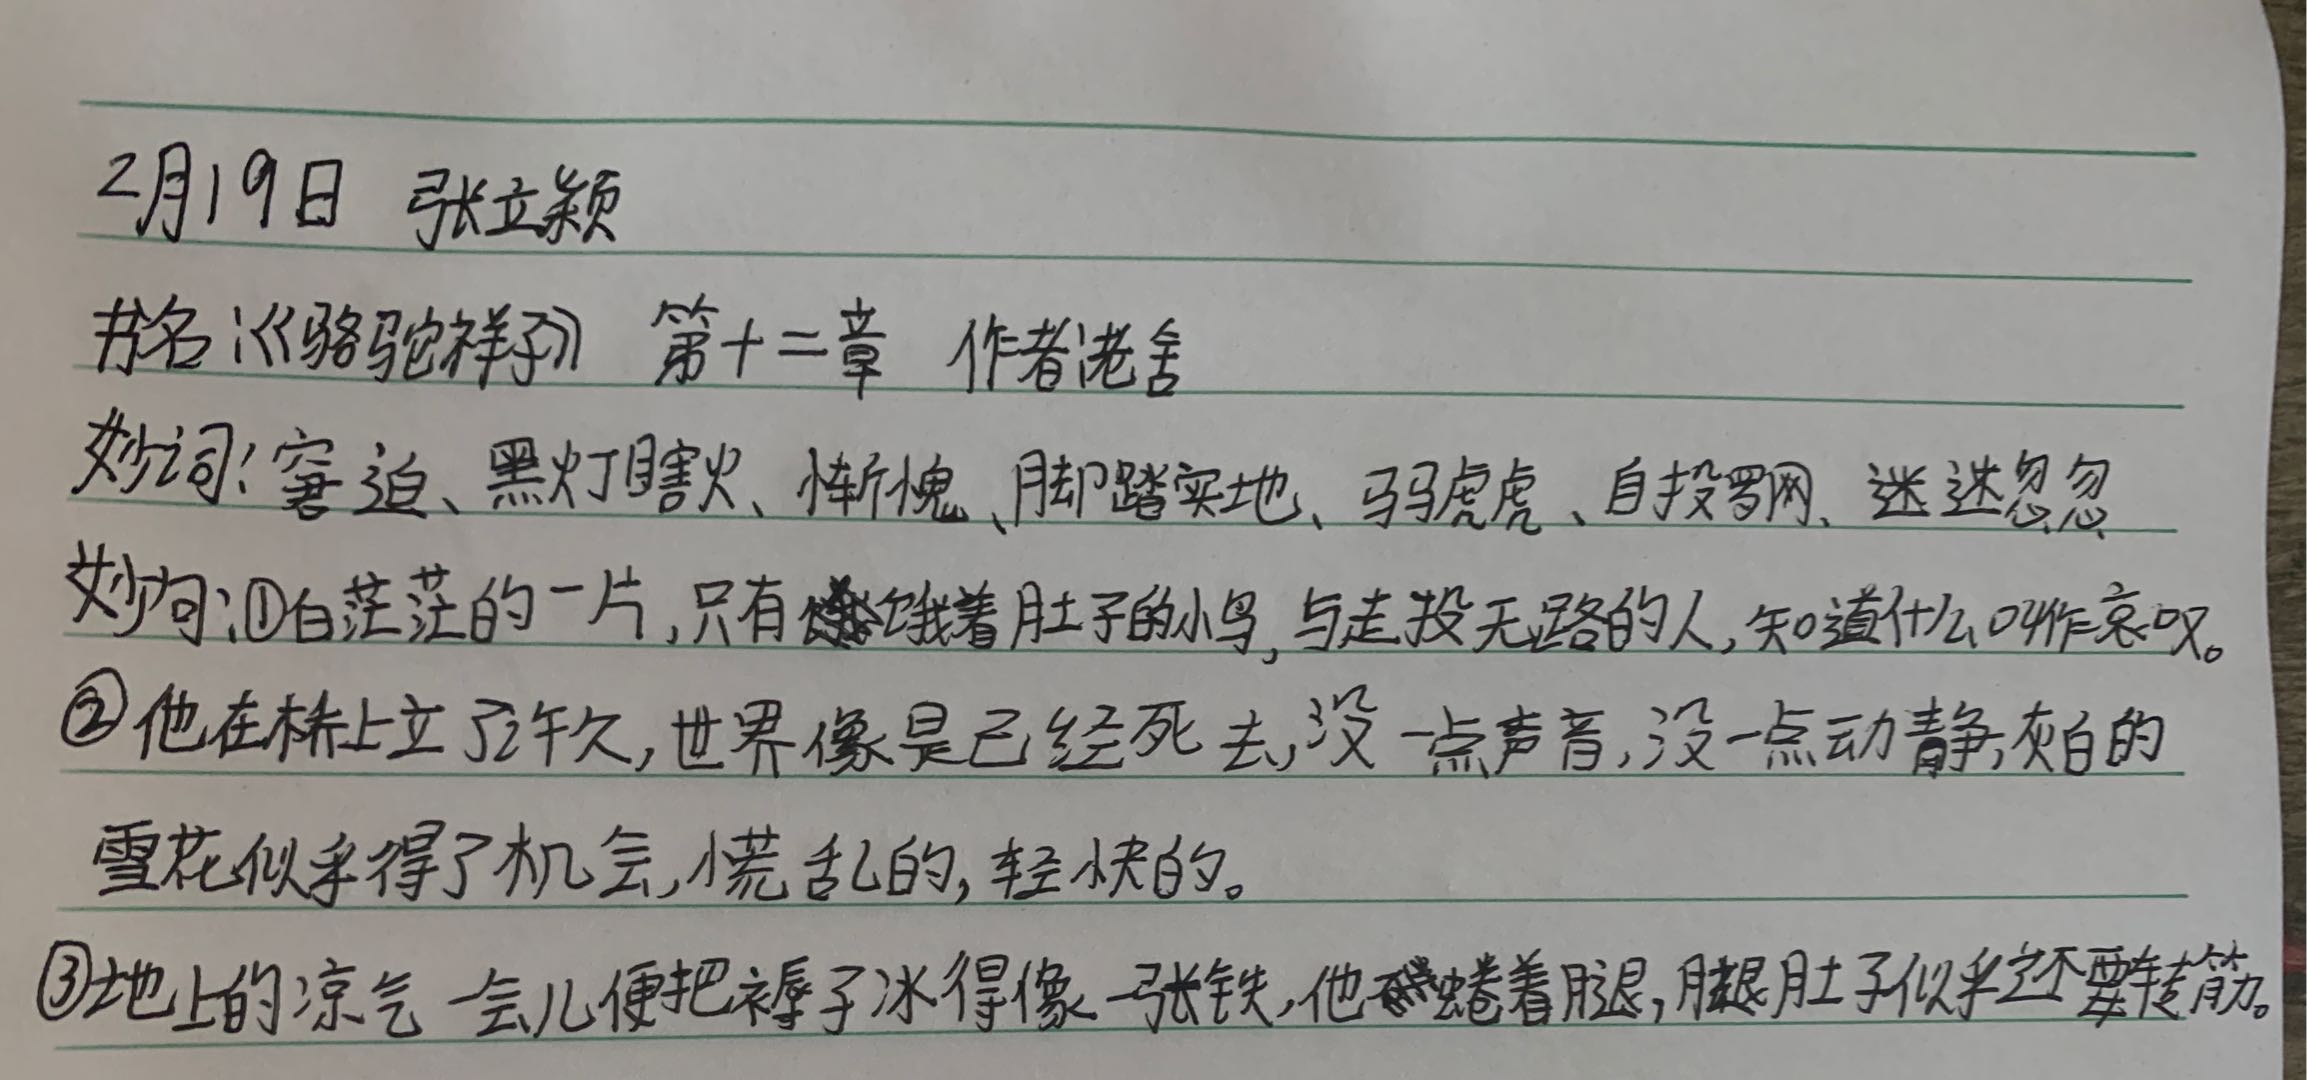 2月19日 张立颖
书名:《骆驼祥子》 第十二章 作者老舍
妙词:窘迫、黑灯瞎火、惭愧、脚踏实地、马马虎虎、自投罗网、迷迷忽忽
妙句:①白茫茫的一片,只有饿着肚子的小鸟,与走投无路的人,知道什么叫作哀叹。
②他在桥上立了许久,世界像是已经死去,没一点声音,没一点动静,灰白的
雪花似乎得了机会,慌乱的,轻快的。
③地上的凉气一会儿便把褥子冰得像一张铁,他蜷着腿,腿肚子似乎还要转筋。